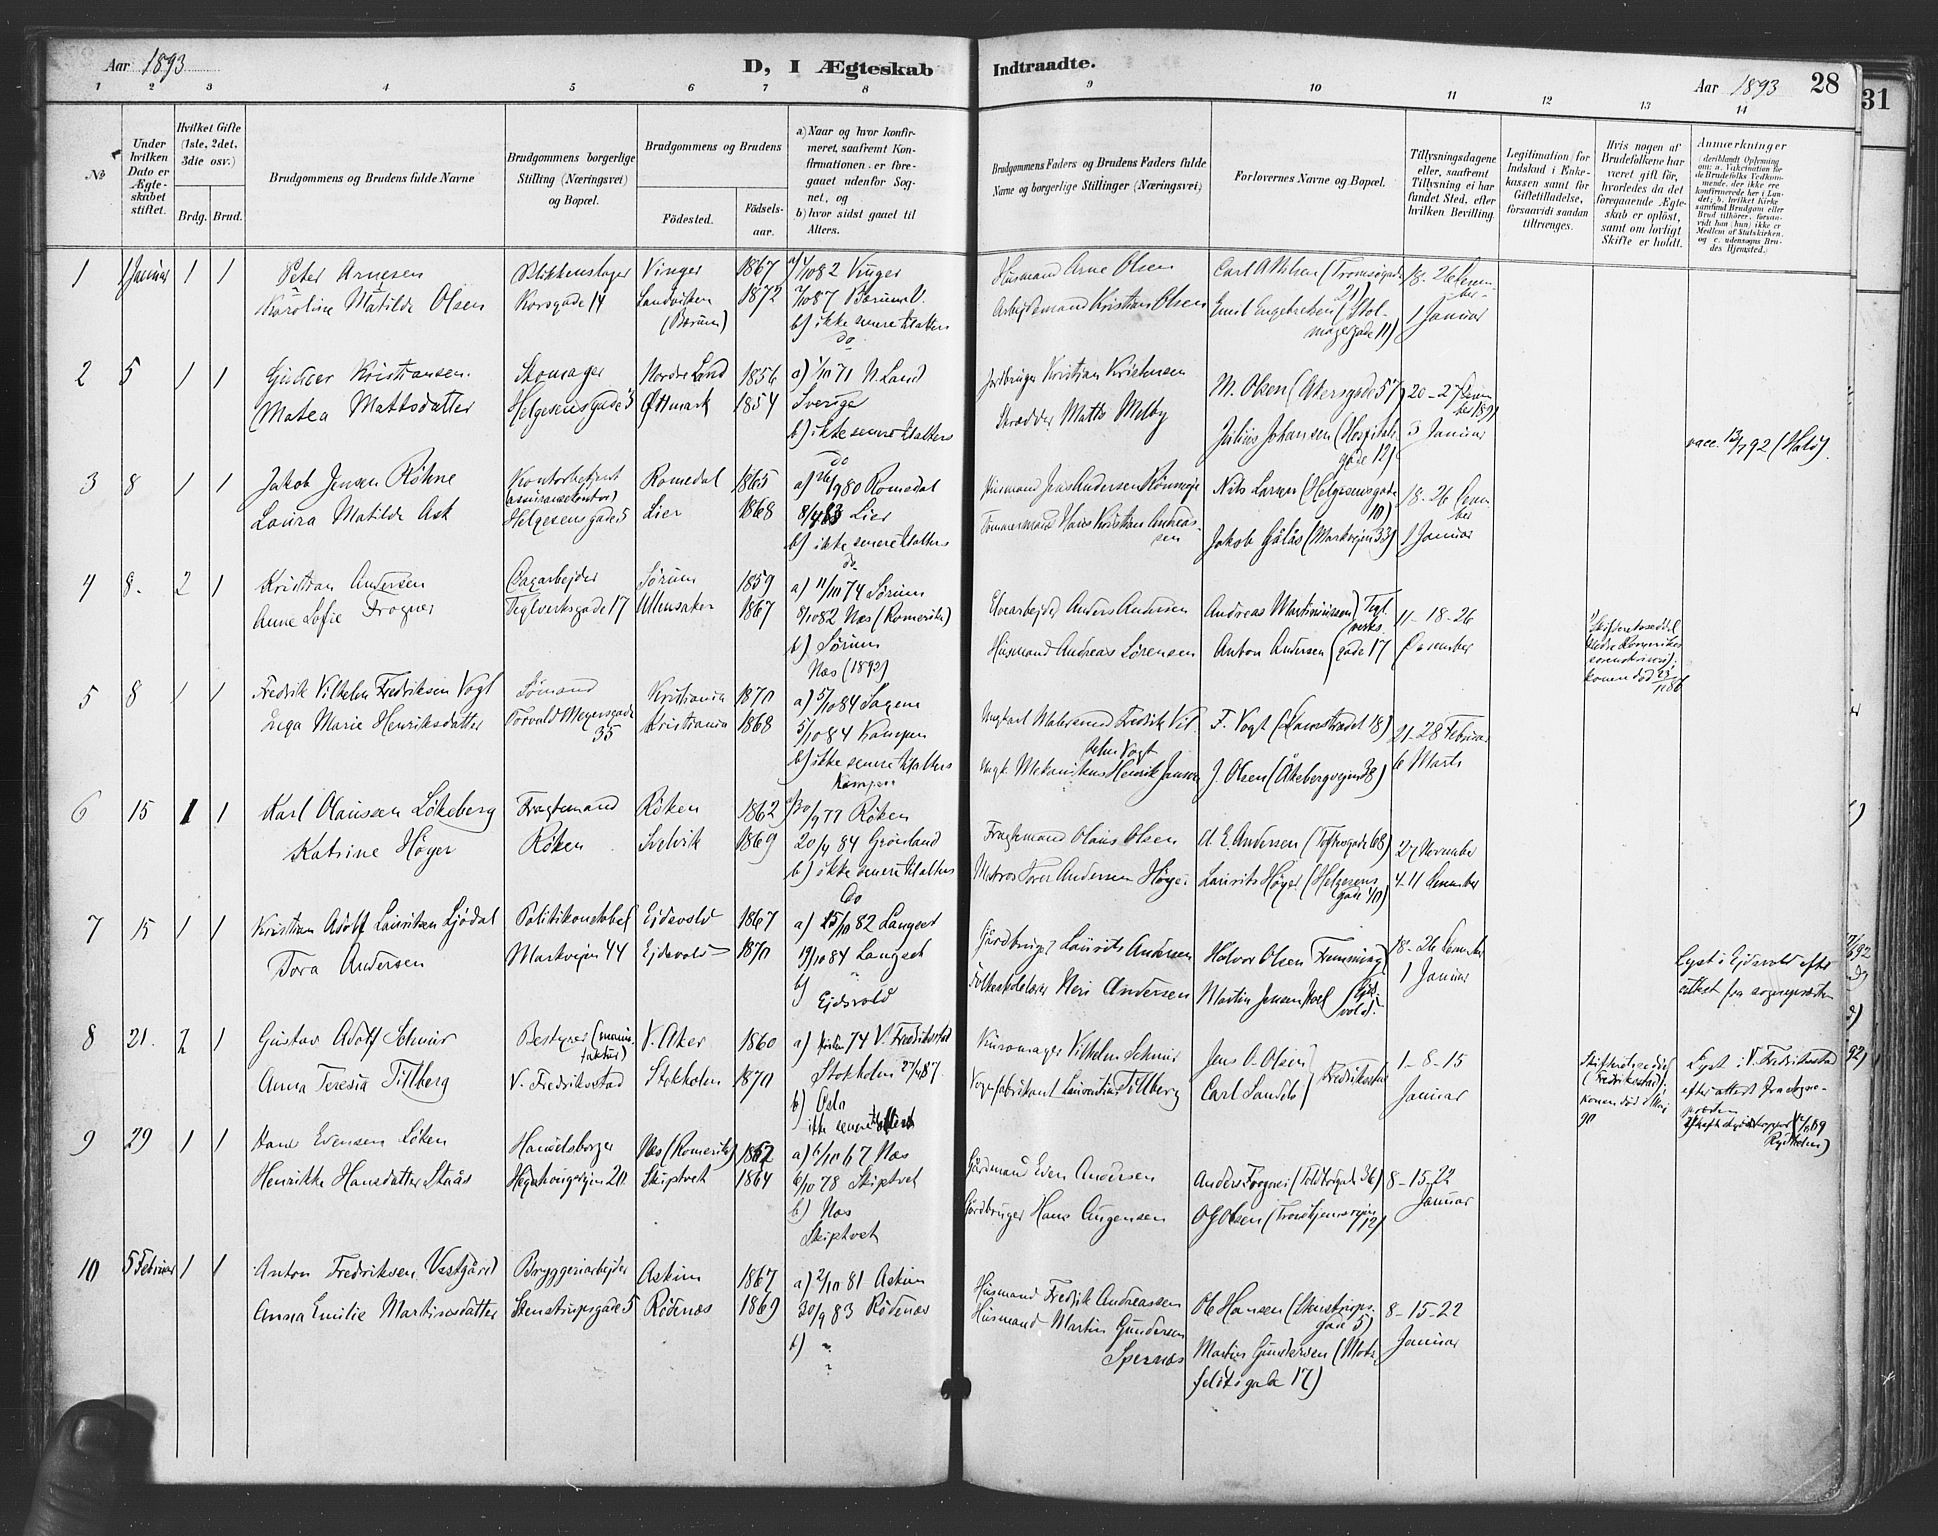 Aar 1893
D, I Ægteskab
Indtraadte.
Aar 1893
28
31
1 2 3 4 5 6 7 8 9 10 11 12 13 14
No
Under hvilken Dato er Ægteskabet stiftet.
Hvilket Gifte (1ste, 2det, 3die osv.)
Brdg. Brud.
Brudgommens og Brudens fulde Navne
Brudgommens borgerlige Stilling (Næringsvei) og Bopæl.
Brudgommens og Brudens
Födested.
Födselsaar.
a) Naar og hvor konfirmeret, saafremt Konfirmationen er foregaaet udenfor Sognet, og
b) hvor sidst gaaet til Alters.
Brudgommens Faders og Brudens Faders fulde Navne og borgerlige Stillinger (Næringsvei)
Forlovernes Navne og Bopæl.
Tillysningsdagene eller, saafremt Tillysning ei har fundet Sted, efter hvilken Bevilling.
Legitimation for Indskud i Enkekassen samt for Giftetilladelse, forsaavidt saadan tiltrænges.
Hvis nogen af Brudefolkene har været gift för, hvorledes da det foregaaende Ægteskab er oplöst, samt om lovligt Skifte er holdt.
Anmærkninger
1 1 Januar 1 1
Peter Arnesen
Karoline Matilde Olsen
Blikkenslager
Korsgade 14
Vinger 1867
Sandviken (Bærum) 1872
1/10 82 Vinger
2/10 87 Bærum V.
b) ikke senere til alters
do
Husmand Arne Olsen
Arbejdsmand Kristian Olsen
Carl A Nilsen (Tromsøgade 21)
Emil Engebretsen (Stolmagergade 11)
18-26 December
1 Januar
2 5 1 1
Gunder Kristiansen
Matea Mattsdatter
Skomager
Helgesensgade 5
Nordre Land 1856
Østmark 1854
a) 1/10 71 N. Land
Sverige
b) ikke senere til alters
do
Jordbruger Kristian Kristensen
Skrædder Matts Melby
M. Olsen (Akersgade 57)
Julius Johansen (Hospitalsgade 12)
20-27 December 189
3 Januar
vacc. 13/7 92 (Holst).
3 8 1 1
Jakob Jensen Røhne
Laura Matilde Ask
Kontorbetjent
(assuransekontor)
Helgesensgade 5
Romedal 1865
Lier 1868
a) 26/9 80 Romedal
8/4 83 Lier
b) ikke senere til alters
do
Husmand Jens Andersen
Tømmermand Hans Kristian Andreassen
Nils Larsen (Helgesensgade 10)
Jakob Gulås (Markvejen 33)
18-26 December
1 Januar
4 8. 2 1
Kristian Andersen
Anne Sofie Frogner
Dagarbejder
Teglverksgade 17
Sørum 1859
Ullensaker 1867
a) 11/10 74 Sørum
8/10 82 Næs (Romerike)
b) Sørum
Næs (1892)
Elvearbejder Anders Andersen
Husmand Andreas Sørensen
Andreas Martinussen
Anton Andersen
(Teglverksgade 17
11-18-26
December
5 8 1 1
Fredrik Vilhelm Fredriksen Vogt
Inga Marie Henriksdatter
Sømand
Torvald Meyersgade 35
Kristiania 1870
Kristiania 1868
a) 5/10 84 Sagene
5/10 84 Kampen
b) ikke senere til alters
Kampen
Ungkarl Malersvend Fredrik Vilhelm Vogt
Ungk. Mekanikus Henrik Jansen
F. Vogt
J. Olsen (Åkebergvejen 38)
21-28 Februar
6 Marts
6 15 1 1
Karl Olaussen Løkeberg
Katrine Høyer
Fragtemand
Røken
Røken 1862
Svelvik 1869
30/9 77 Røken
20/4 84 Grønland
b) ikke senere til alters
Do
Fragtemand Olaus Olsen
Matros Andersen Høyer
A. E. Andersen (Toftesgade 68)
Laurits Høyer (Helgesensgade 40)
27 November
4-11 December
7 15 1 1
Kristian Adolf Lauritsen Ljødal
Tora Andersen
Politikonstabel
Markvejen 44
Ejdsvold 1867
Ejdsvold 1870
a) 15/10 82 Langset
19/10 84 Langset
b) "
Ejdsvold
Gårdbruger Laurits Andersen
Folkeskolelærer Andersen
Halvor Olsen
Martin Jensen
(Ejdsvold).
18-26 December
1 Januar
Lyst i Ejdsvold efter
attest fra sognepræsten
8 21. 2 1
Gustav Adolf Schuur
Anna Teresia Tillberg
Bestyrer (manufaktur)
V. Fredriksstad
V. Aker 1860
Stokholm 1870
a) 74 V. Fredriksstad
Stokholm 27/4 87.
b) Oslo
ikke senere til alters
Kurvmager Vilhelm Schuur
Vognfabrikant Laurentius Tillberg
Jens O. Olsen
Carl Sands
Fredriksstad
1-8-15
Januar
Skifteretseddel
(Fredriksstad).
konen død i Mai
90
Lyst i V. Fredriksstad
efter attest fra
9 29 1 1
Hans Evensen Løken
Henrikke Hansdatter Staås
Handelsborger
20.
Næs (Romerike) 1852
Skiptvet 1864
a) 6/10 67 Næs
6/10 78 Skiptvet
b) Næs
Skiptvet
Gårdmand Even Andersen
Gårdbruger Hans Augensen
Anders Frogner (Toldbodgade 36)
O. G. Olsen (Trondhjemsvejen 12)
8-15-22
Januar
10 5 Februar 1 1
Anton Fredriksen Vestgård
Anna Emilie Martinsdatter
Bryggeriarbejder
Stenstrupsgade 5
Askim 1867
Rødenæs 1869
a) 2/10 81 Askim
30/9 83 Rødenæs
b) "
"
Husmand Fredrik Andreassen
Husmand Martin Gundersen
Spernæs
Ole Hansen (Stenstrupsgade 5)
Martin Gundersen (Motzfeldtsgade 17)
8-15-22
Januar